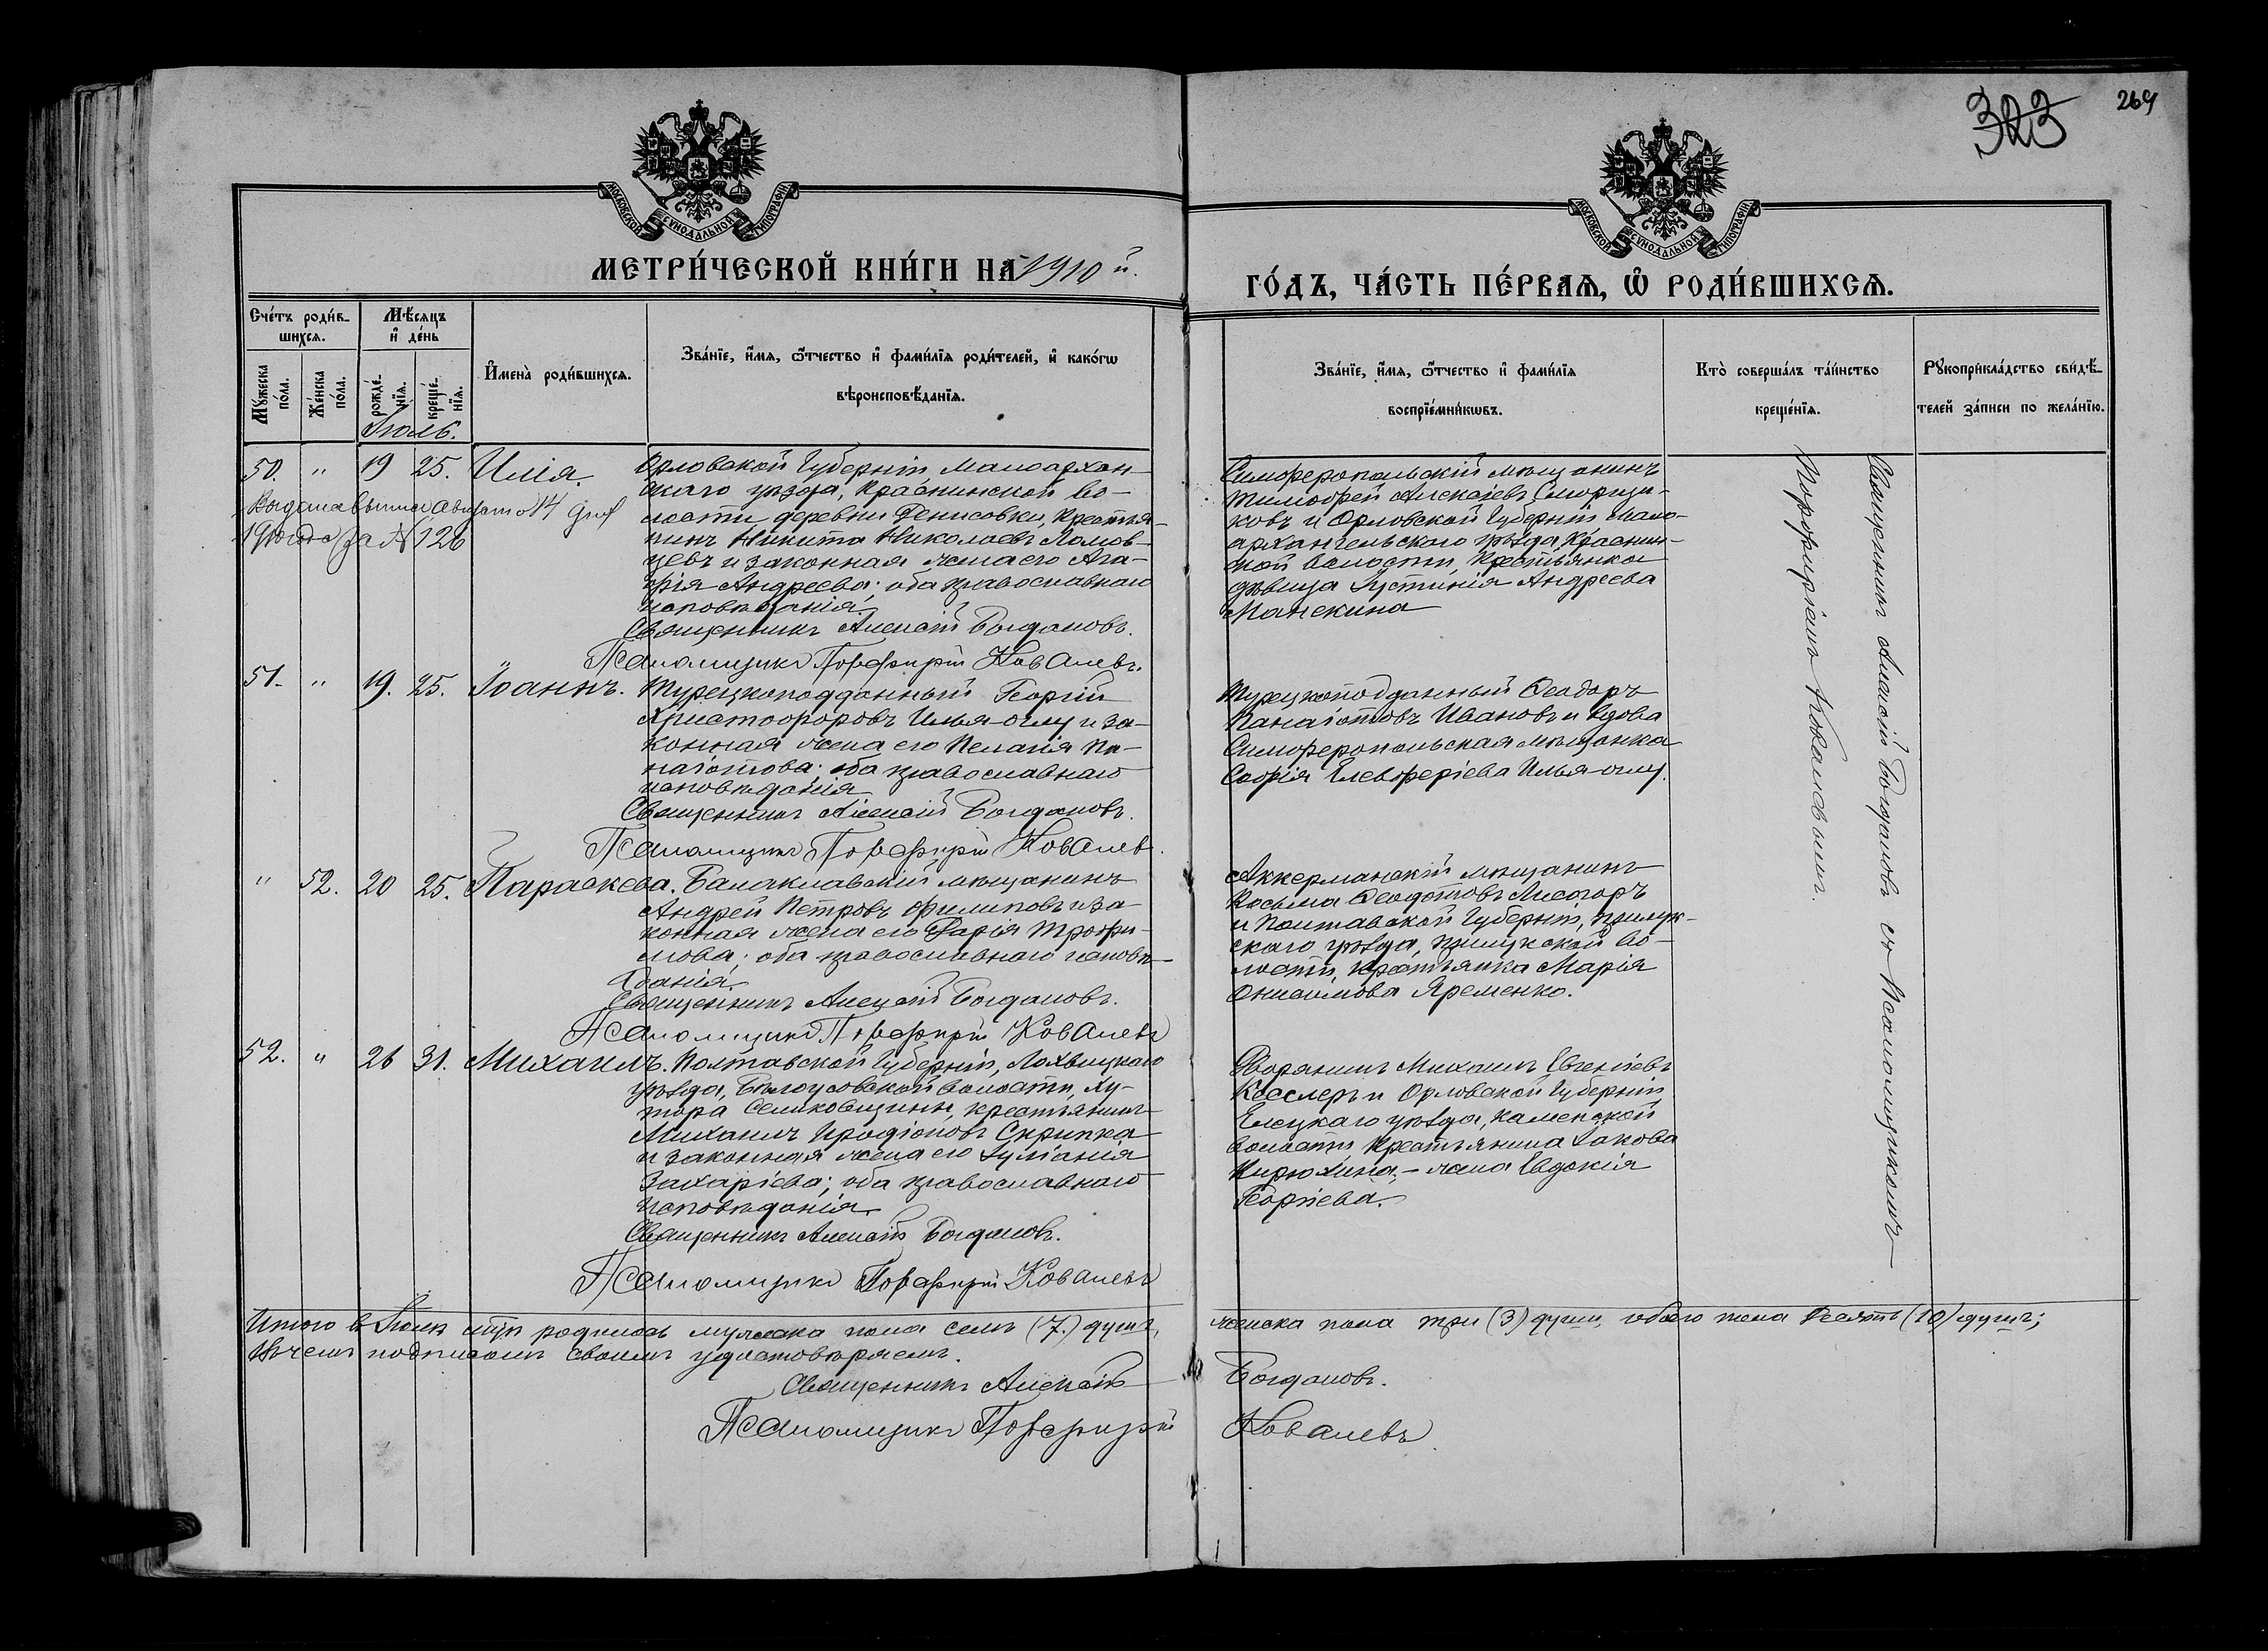 323
269
МОСКОВСКОЙ СѴНОДАЛЬНОЙ ТИПОГРАФІИ
МОСКОВСКОЙ СѴНОДАЛЬНОЙ ТИПОГРАФІИ
МЕТРИ́ЧЕСКОЙ КНИ́ГИ НА 1910 й.
ГО́ДЪ, ЧА́СТЬ ПЕ́РВАѦ, Ѡ҆ РОДИ́ВШИХСѦ.
Сче́тъ роди́в-
шихсѧ.
Мѣ́сѧцъ
и҆ де́нь
Мꙋ́жеска
по́ла.
Же́нска
по́ла.
рожде́-
нїѧ.
креще́-
нїѧ.
И҆мена̀ роди́вшихсѧ.
Зва́нїе, и҆́мѧ, ѻ҆́тчество и҆ фами́лїѧ роди́телей, и҆ како́гѡ
вѣроисповѣ́данїѧ.
Зва́нїе, и҆́мѧ, ѻ҆́тчество и҆ фами́лїѧ
воспрїе́мникѡвъ.
Кто̀ соверша́лъ та́инство
креще́нїѧ.
Рꙋкоприкла́дство свидѣ́-
телей за́писи по жела́нїю.
Іюль.
50. " 19 25. Илія.
Орловской Губерніи, Малоархан-
скаго уѣзда, Краснинской во-
лости деревни Денисовки, крестья-
нинъ Никита Николаевъ Ломов-
цевъ и законная жена его Ага-
фія Андреева; оба православнаго
исповѣданія.
Священникъ Алексій Богдановъ.
Псаломщикъ Порфирій Ковалевъ.
Выдана выпись августа 14 дня
1910 года за № 126
Симферопольскій мѣщанинъ
Тимофей Алексіевъ
ковъ и Орловской Губерніи Мало-
архангельскаго уѣзда, Краснин-
ской волости, крестьянка
дѣвица Іустинія Андреева
Манекина
51. " 19. 25. Іоаннъ.
Турецкоподданный Георгій
Христофоровъ Илья-оглу и за-
конная жена его Пелагія Па-
наіотова; оба православнаго
исповѣданія
Священникъ Алексій Богдановъ.
Псаломщикъ Порфирій Ковалевъ.
Турецкоподданный Ѳеодоръ
Панаіотовъ Ивановъ и вдова
Симферопольская мѣщанка
Софія Елевферіева Илья-оглу.
" 52. 20 25. Параскева.
Балаклавскій мѣщанинъ
Андрей Петровъ Филиповъ и за
конная жена его Дарія Трофи-
мова; оба православнаго исповѣ-
данія.
Священникъ Алексій Богдановъ.
Псаломщикъ Порфирій Ковалевъ
Аккерманскій мѣщанинъ
Косьма Ѳеодотовъ Лисогоръ
и Полтавской Губерніи, Прилук-
скаго уѣзда, Прилукской во-
лости, крестьянка Марія
Онисимова Яременко.
52. " 26 31. Михаилъ.
Полтавской Губерніи, Лохвицкаго
уѣзда, Бѣлоусовской волости, ху-
тора Селиковщины, крестьянинъ
Михаилъ Иродіоновъ Скрипка
и законная жена его Іуліанія
Захаріева; оба православнаго
исповѣданія.
Священникъ Алексій Богдановъ.
Псаломщикъ Порфирій Ковалевъ
Дворянинъ Михаилъ Евгеніевъ
Кесслеръ и Орловской Губерніи
Елецкаго уѣзда, Каменской
волости крестьянина Іакова
Кирюхина,- жена Евдокія
Георгіева.
Священникъ Алексій Богдановъ съ Псаломщикомъ
Порфиріемъ Ковалевымъ.
Итого въ Іюлѣ м-цѣ родилось мужеска пола семь (7.) душъ, женска пола три (3) души, обоего пола десять (10) душъ;
въ чемъ подписомъ своимъ удостовѣряемъ.
Священникъ Алексій Богдановъ.
Псаломщикъ Порфирій Ковалевъ